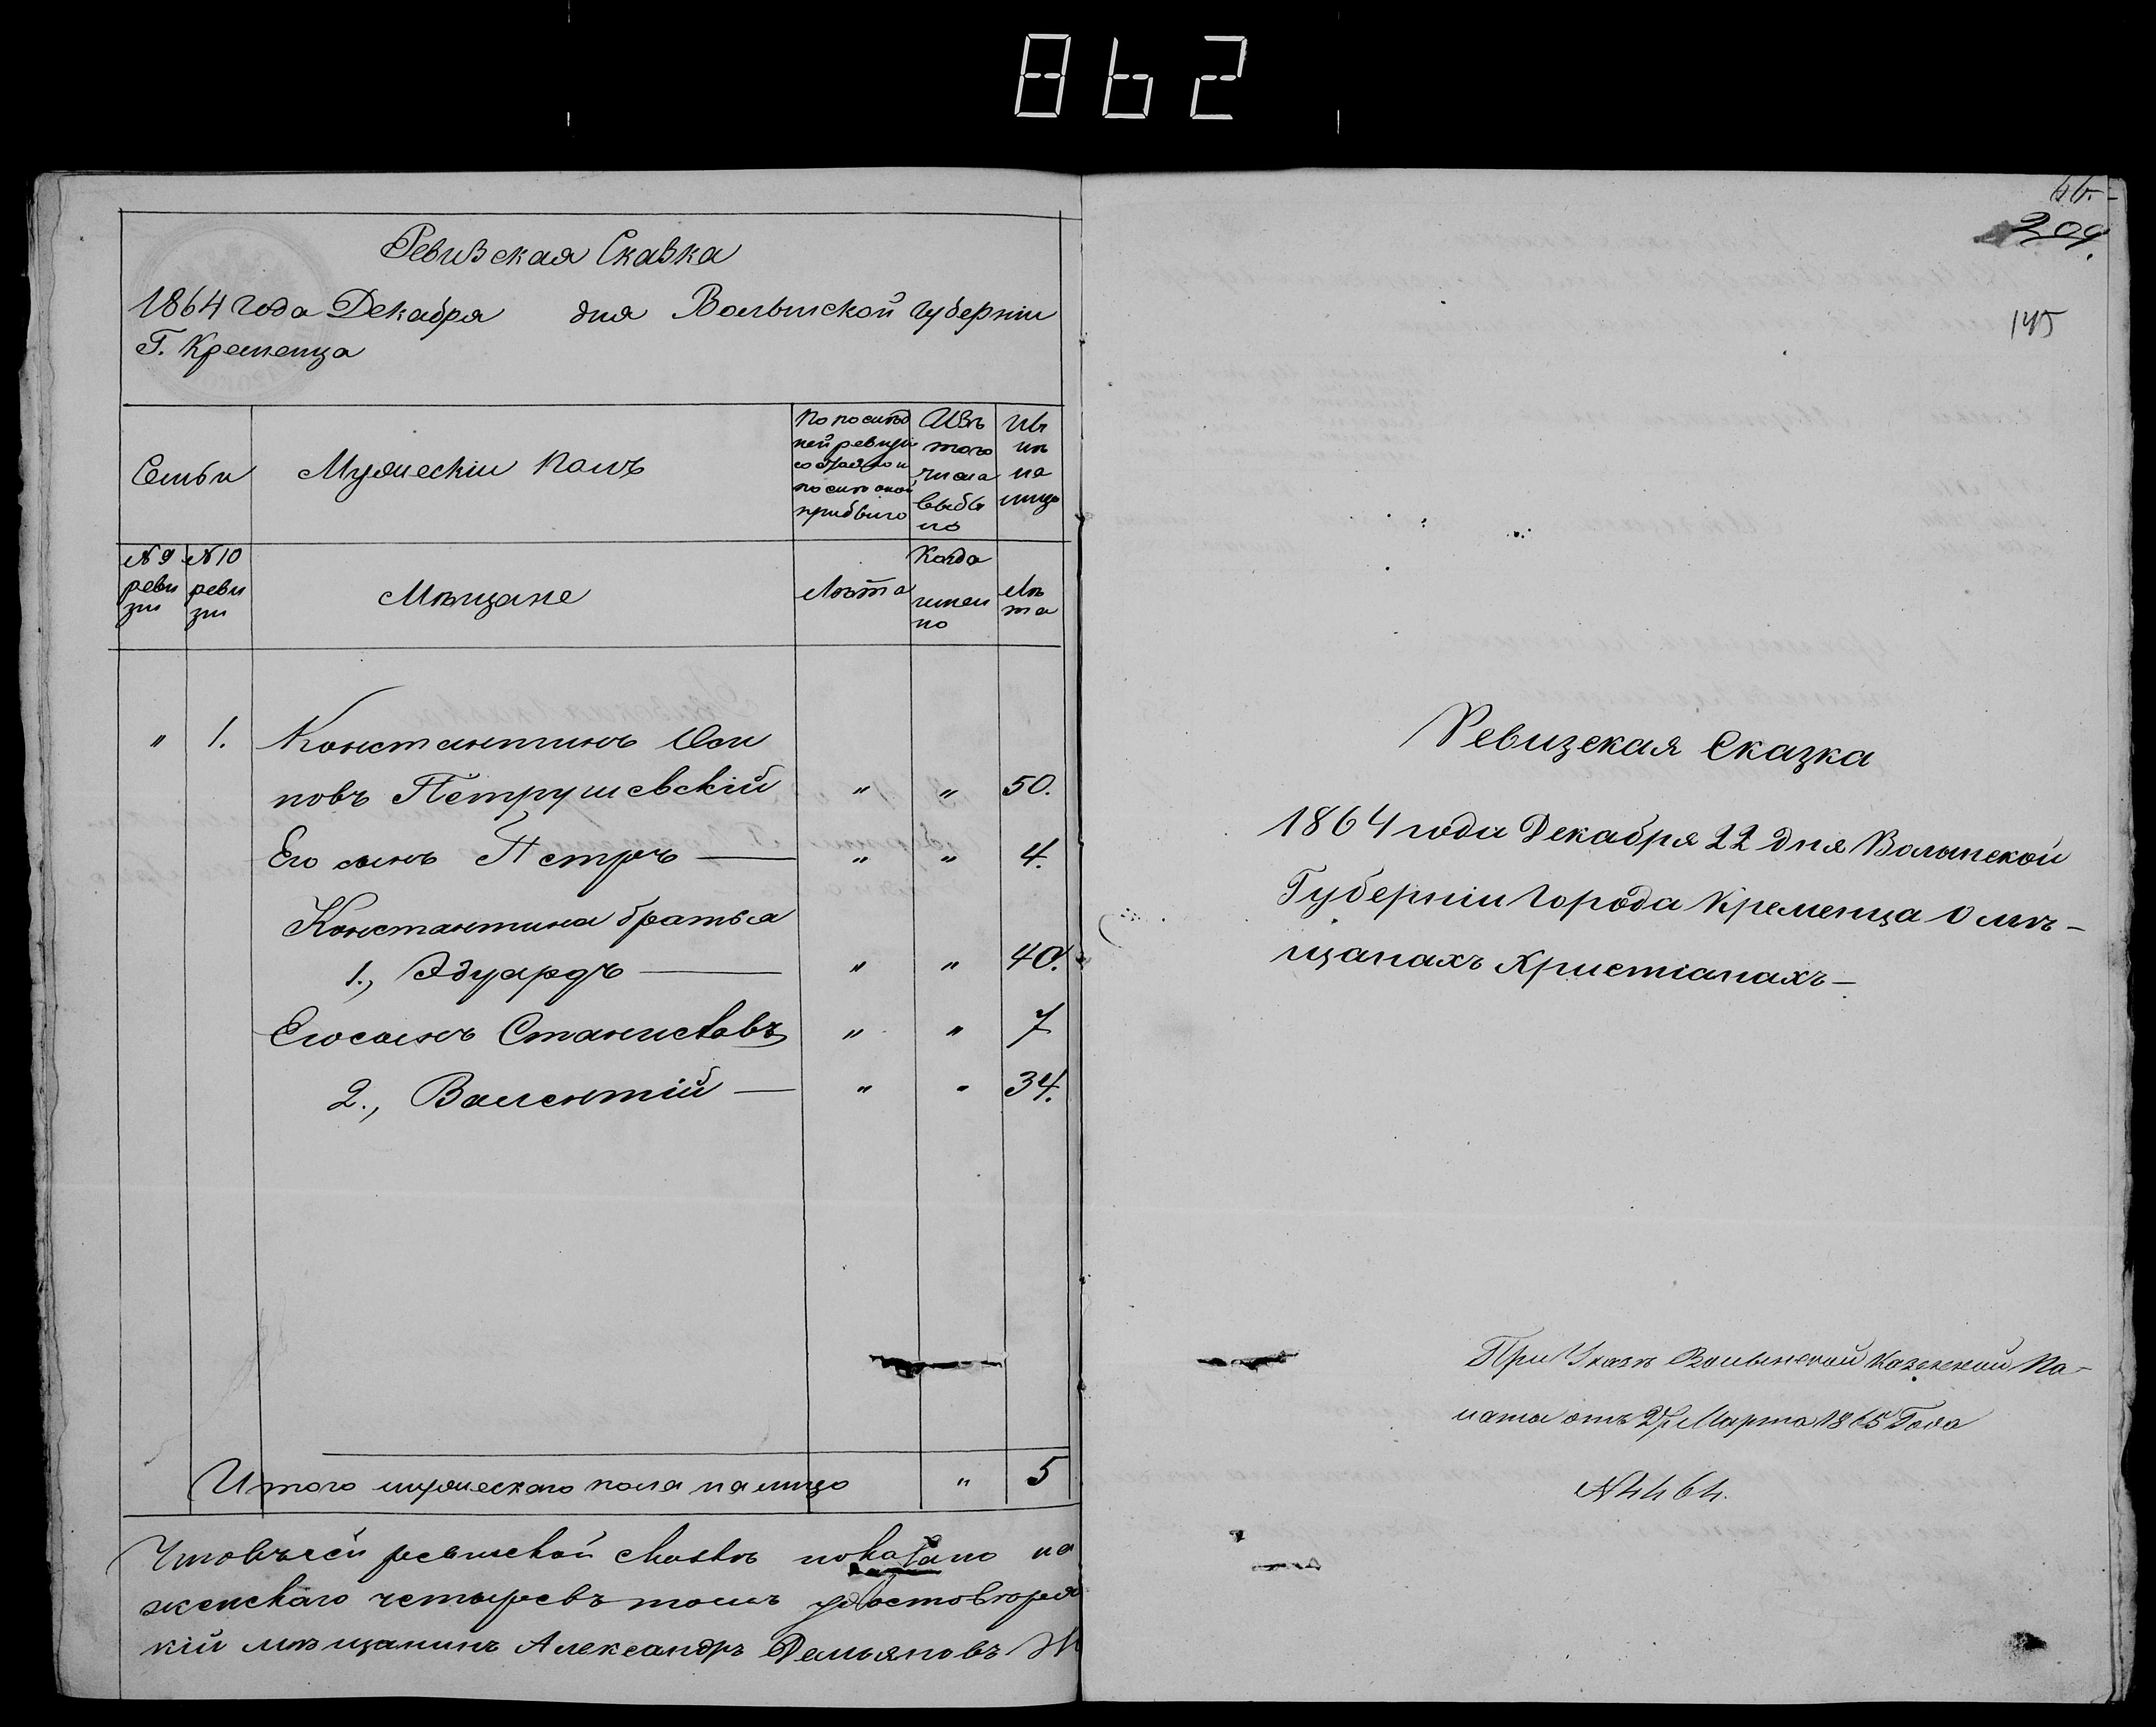 862
Ревизская Сказка
1864 года Декабря дня Волынской губерніи
Г. Кременца
Семьи
Мужескій полъ
По послѣд
ней ревизіи
состояло и
послѣ оной
прибыло
Изъ
того
числа
выбы
ло
Ны
нѣ
на
лицо
№ 9
реви
зіи
№ 10
реви
зіи
Мѣщане
Лѣта
Когда
имен
но
Лѣ
та
" 1. Константинъ Оси
повъ Петрушевскій " " 50.
Его сынъ Петръ — " " 4.
Константина братья
1., Эдуардъ — " " 40.
Его сынъ Станиславъ " " 7
2., Валентій — " " 34.
Итого мужескаго пола на лицо " 5
Что въ сей ревизской сказкѣ показано на
женскаго четыре въ томъ удостовѣря
кій мѣщанинъ Александръ Демьяновъ
209.
145
Ревизская Сказка
1864 года Декабря 22 дня Волынской
Губерніи Города Кременца О мѣ-
щанахъ Христіанахъ—
При Указѣ Волынской Казенной Па-
латы отъ Марта 1865 Года
№ 4464.